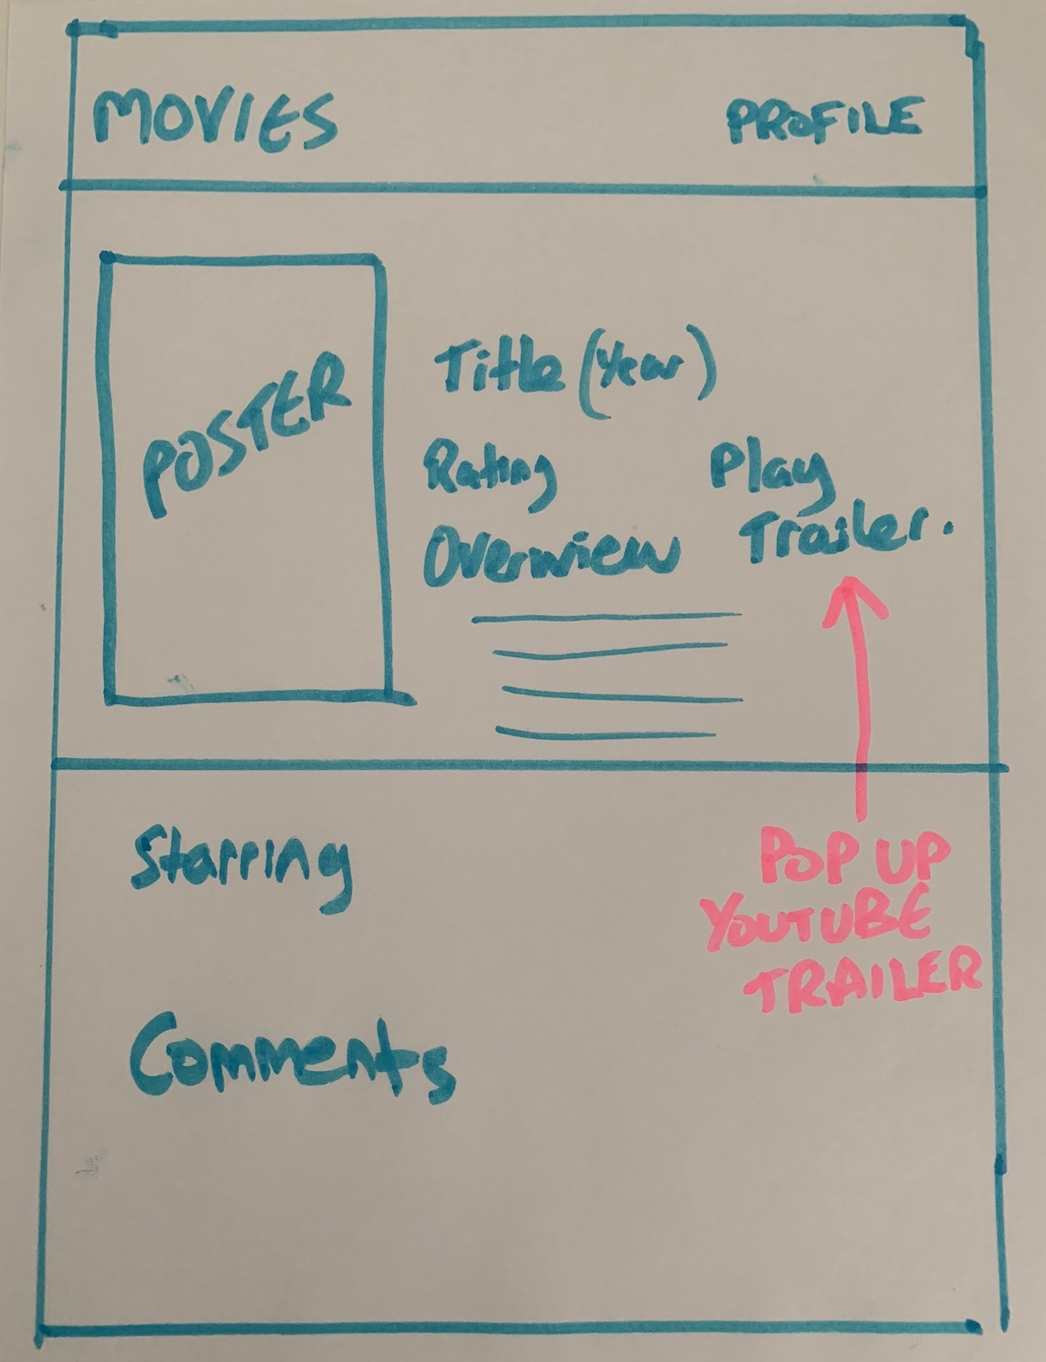 MOVIES PROFILE
POSTER
Title (Year)
Rating
Overwiew
Play
Trailer.
Starring
Comments
POP UP
YOUTUBE
TRAILER